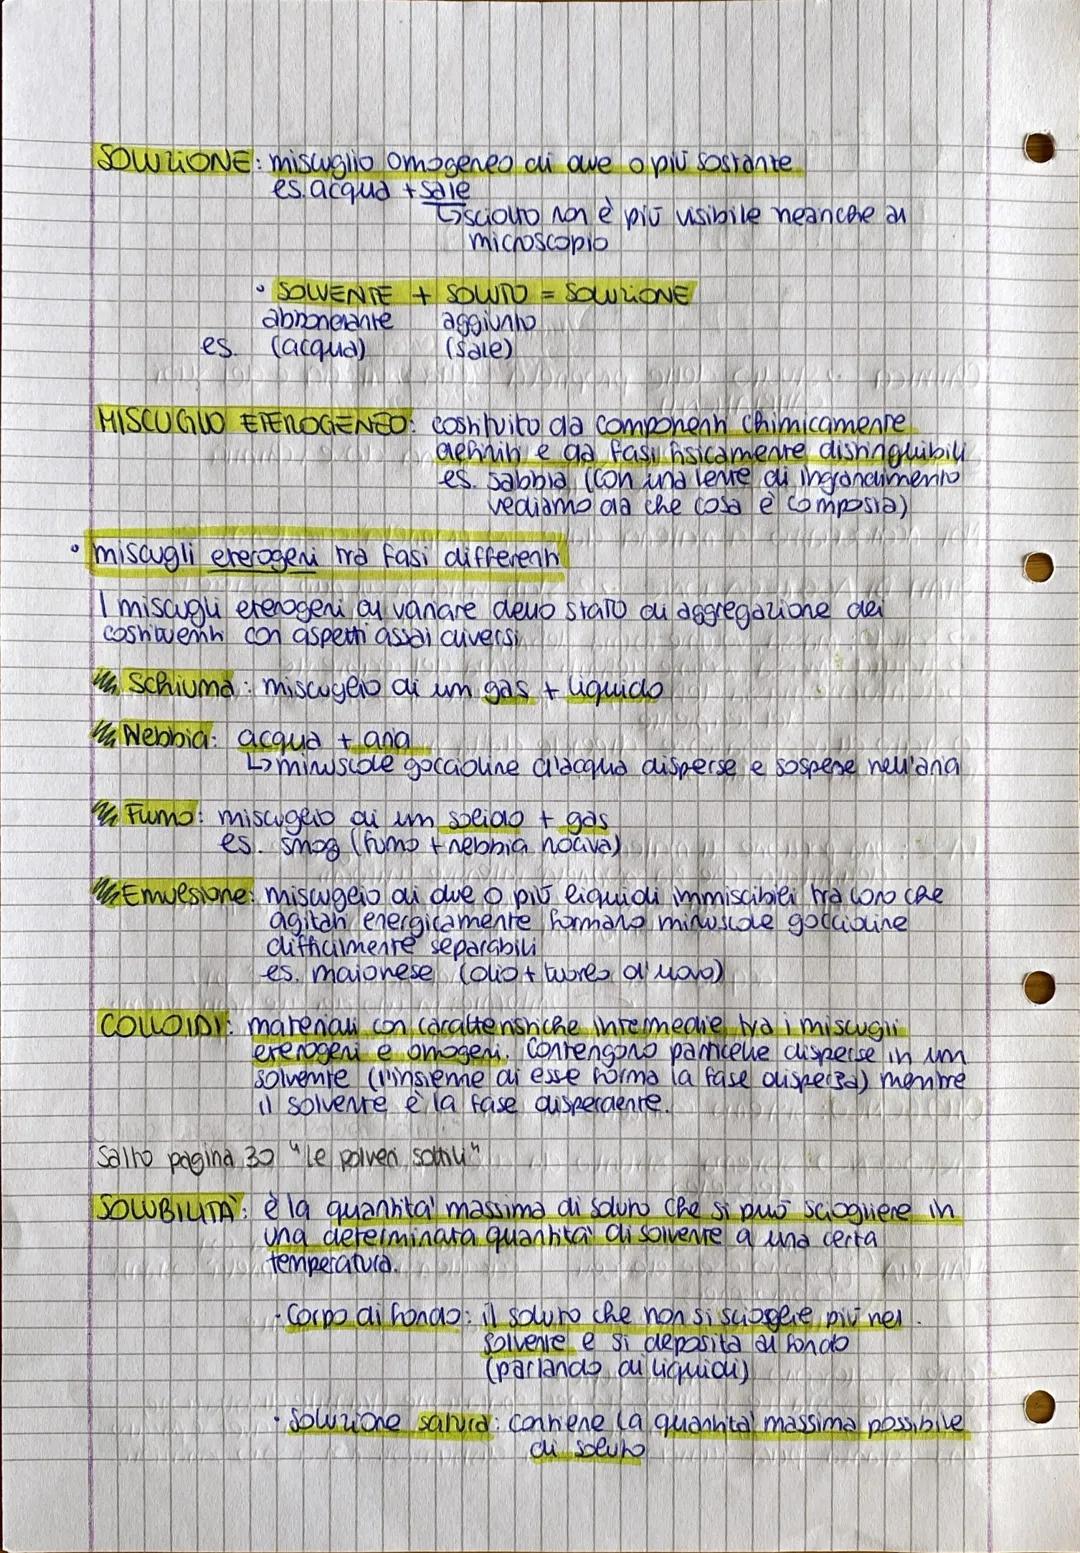 SOLUZIONE: miscuglio omogeneo di due o più sostante
es. acqua + sale
↳sciolto non è più visibile neanche al
microscopio
• SOLVENTE + SOLUTO = SOLUZIONE
abbondante aggiunto
es. (acqua) (sale)
MISCUGLIO ETEROGENEO: costituito da componenti chimicamente
definiti e da fasi fisicamente distinguibili
es. sabbia (con una lente di ingrandimento
vediamo da che cosa è composta)
• miscugli eterogeni tra fasi differenti
I miscugli eterogeni al variare dello stato di aggregazione dei
costituenti con aspetti assai diversi
Schiuma: miscuglio di un gas + liquido
Nebbia: acqua + aria
↳minuscole goccioline d'acqua disperse e sospese nell'aria
Fumo: miscuglio di un solido + gas
es. smog (fumo + nebbia nociva)
Emulsione: miscuglio di due o più liquidi immiscibili tra loro che
agitati energicamente formano minuscole goccioline
difficilmente separabili
es. maionese (olio + tuorlo d'uovo)
COLLOIDI: materiali con caratteristiche intermedie tra i miscugli
eterogeni e omogeni. Contengono particelle disperse in un
solvente (l'insieme di esse forma la fase dispersa) mentre
il solvente è la fase disperdente.
Salto pagina 30 "Le polveri sottili"
SOLUBILITÀ: è la quantità massima di soluto che si può sciogliere in
una determinata quantità di solvente a una certa
temperatura.
· Corpo di fondo: il soluto che non si scioglie più nel
solvente e si deposita al fondo
(parlando di liquidi)
· Soluzione satura: contiene la quantità massima possibile
di soluto